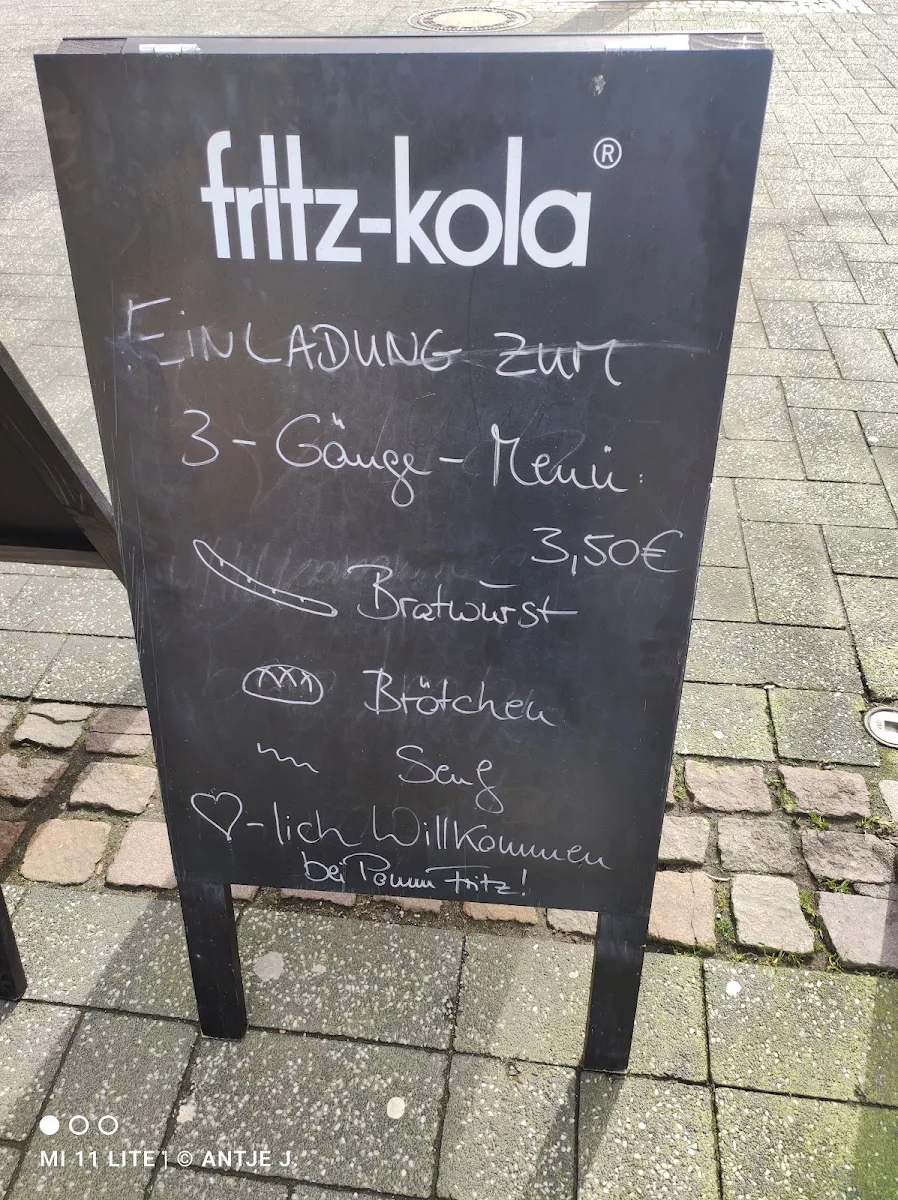 fritz-kola®
EINLADUNG ZUM
3-Gänge-Menü:
3,50€
Bratwurst
Brötchen
Senf
♡-lich Willkommen
bei Pomm Fritz!
MI 11 LITE | © ANTJE J.